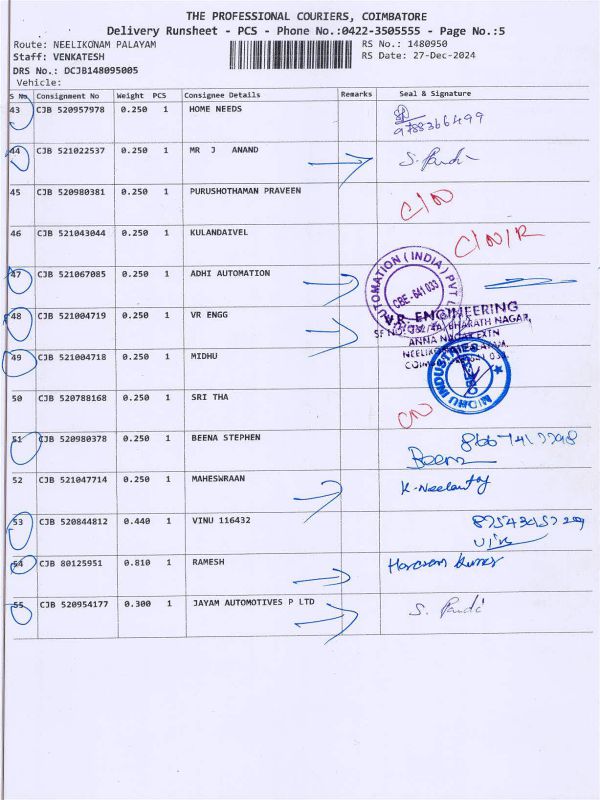 THE PROFESSIONAL COURIERS, COIMBATORE
Delivery Runsheet - PCS - Phone No.:0422-3505555 - Page No.:5
Route: NEELIKONAM PALAYAM RS No.: 1480950
Staff: VENKATESH RS Date: 27-Dec-2024
DRS No.: DCJB148095005
Vehicle:
S No. Consignment No Weight PCS Consignee Details Remarks Seal & Signature
43 CJB 520957978 0.250 1 HOME NEEDS
9788366499
44 CJB 521022537 0.250 1 MR J ANAND
45 CJB 520980381 0.250 1 PURUSHOTHAMAN PRAVEEN C/N
46 CJB 521043044 0.250 1 KULANDAIVEL C/N/R
47 CJB 521067085 0.250 1 ADHI AUTOMATION
AUTOMATION (INDIA) PVT
CBE - 641 033
48 CJB 521004719 0.250 1 VR ENGG
V.R. ENGINEERING
BHARATH NAGAR,
ANNA NAGAR EXTN
49 CJB 521004718 0.250 1 MIDHU
MIDHU INDUSTRIES
50 CJB 520788168 0.250 1 SRI THA CN
51 CJB 520980378 0.250 1 BEENA STEPHEN
Beena
52 CJB 521047714 0.250 1 MAHESWRAAN
53 CJB 520844812 0.440 1 VINU 116432
54 CJB 80125951 0.810 1 RAMESH
55 CJB 520954177 0.300 1 JAYAM AUTOMOTIVES P LTD